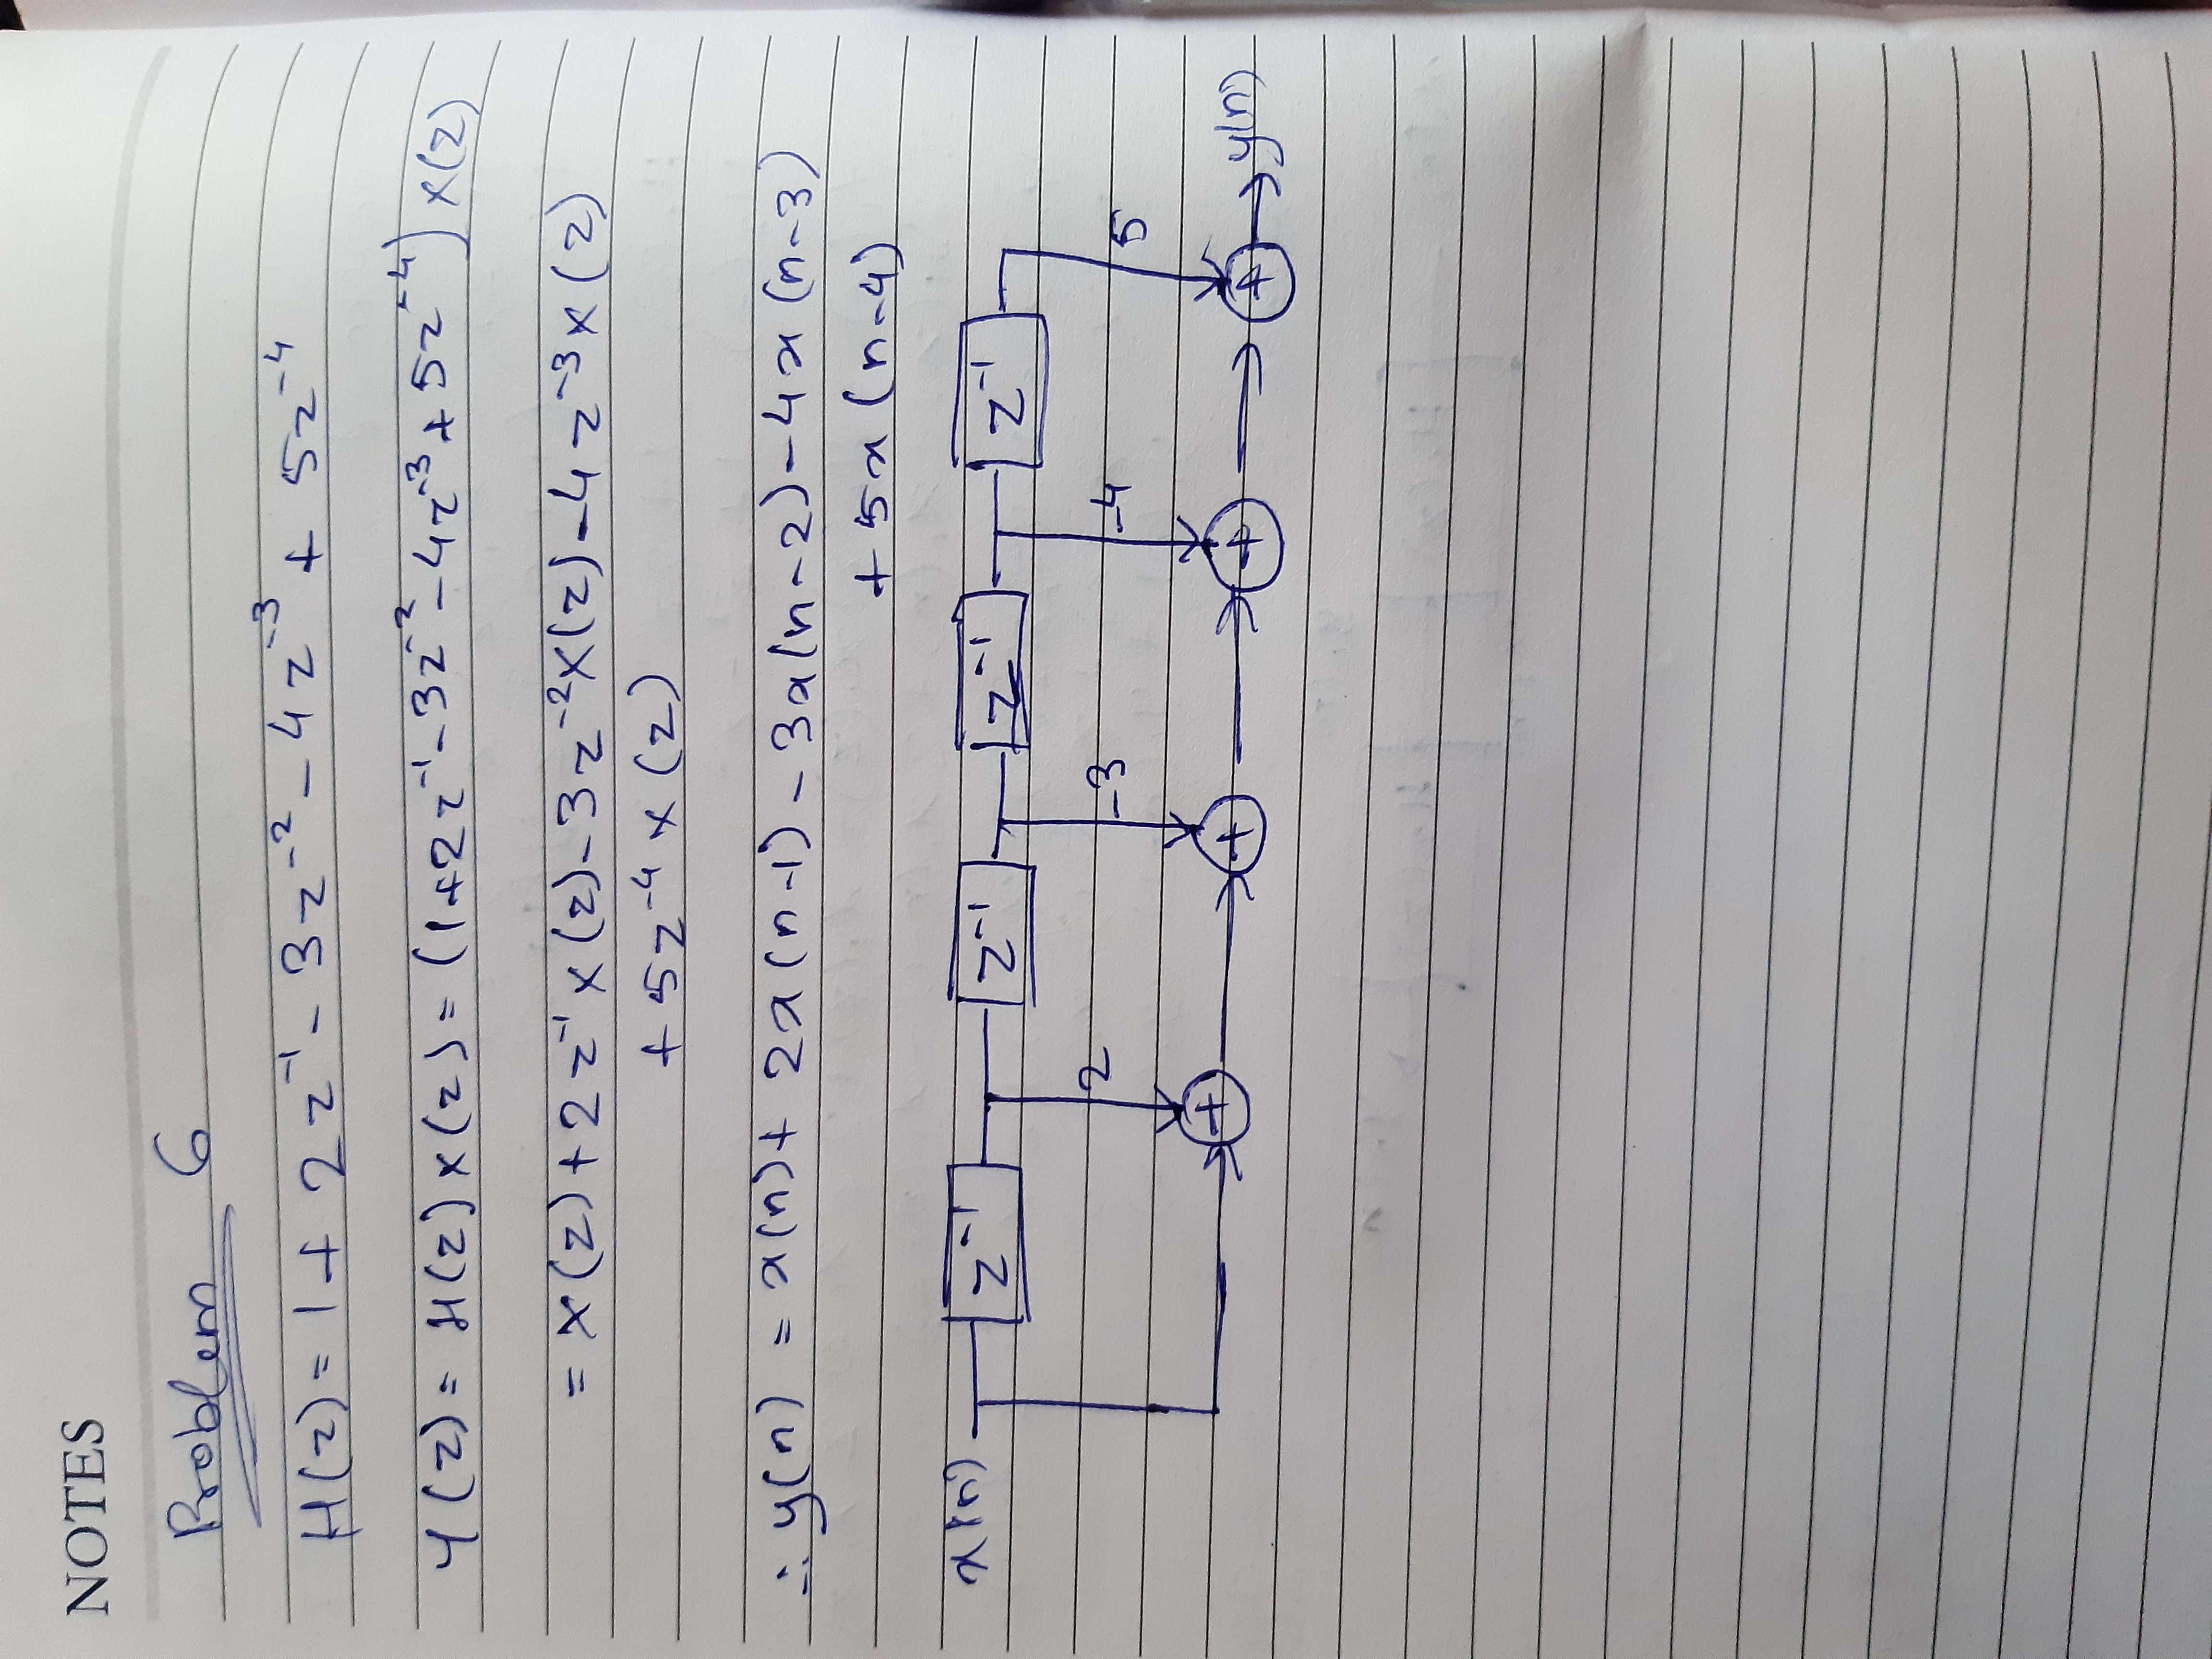 NOTES
Problem 6
H(z) = 1 + 2z⁻¹ - 3z⁻² - 4z⁻³ + 5z⁻⁴
Y(z) = H(z) X(z) = (1+2z⁻¹-3z⁻²-4z⁻³+5z⁻⁴) X(z)
= X(z)+2z⁻¹X(z)-3z⁻²X(z)-4z⁻³X(z)
+ 5z⁻⁴X(z)
∴ y(n) = x(n)+ 2x(n-1) - 3x(n-2)-4x(n-3)
+ 5x(n-4)
x(n) z⁻¹ z⁻¹ z⁻¹ z⁻¹
2 -3 -4 5
+ + + + y(n)